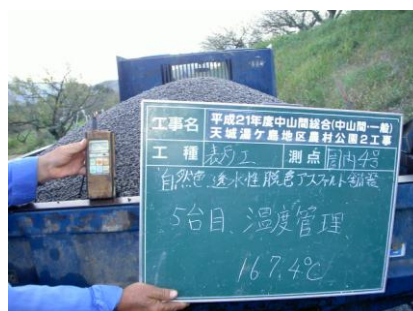 工事名 平成21年度中山間総合(中山間・一般)
天城湯ケ島地区農村公園2工事
工種 表層工 測点 園内4号
自然色 透水性 脱色アスファルト舗装
5台目、温度管理、
167.4℃